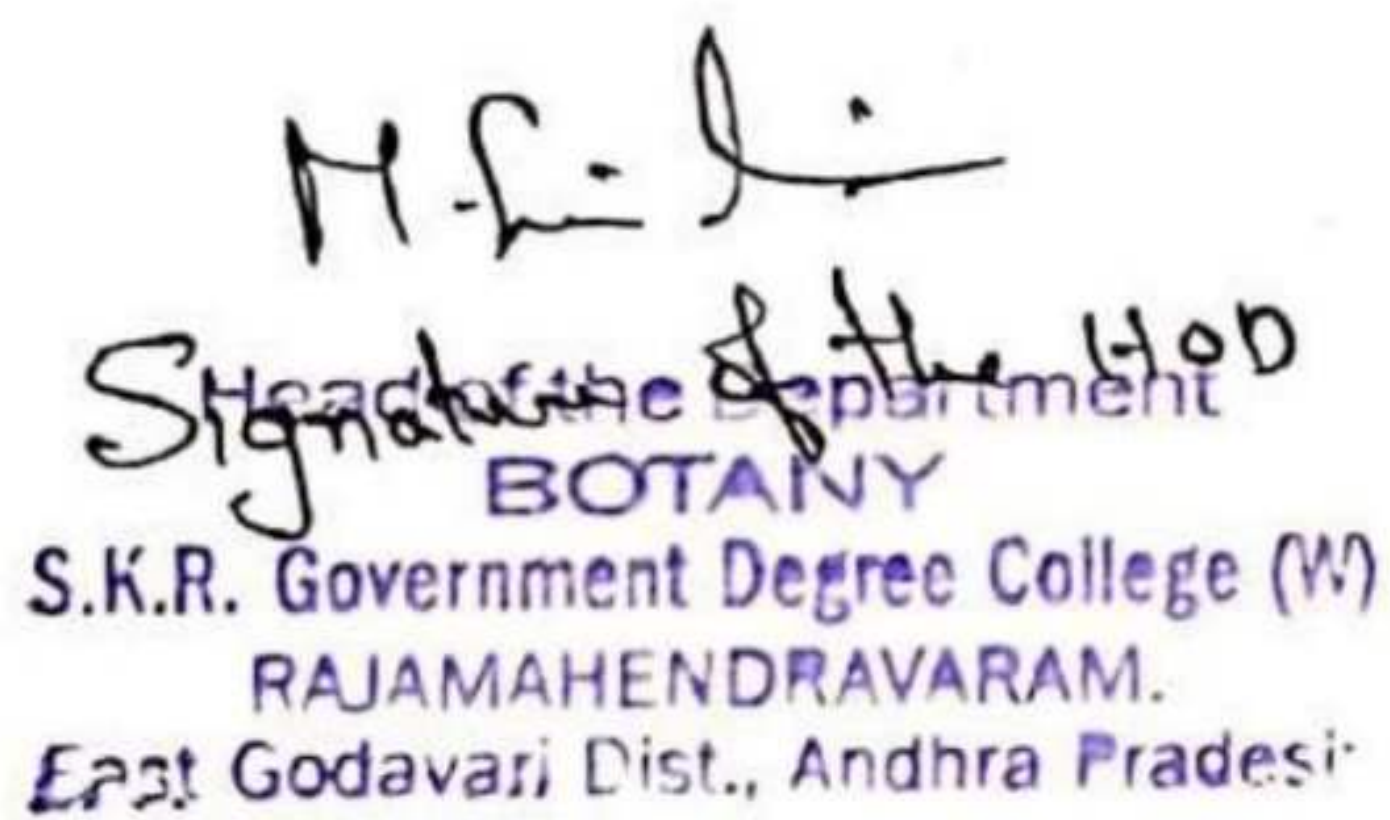 M.
Signature of the HOD
Head of the Department
BOTANY
S.K.R. Government Degree College (W)
RAJAMAHENDRAVARAM.
East Godavari Dist., Andhra Pradesh